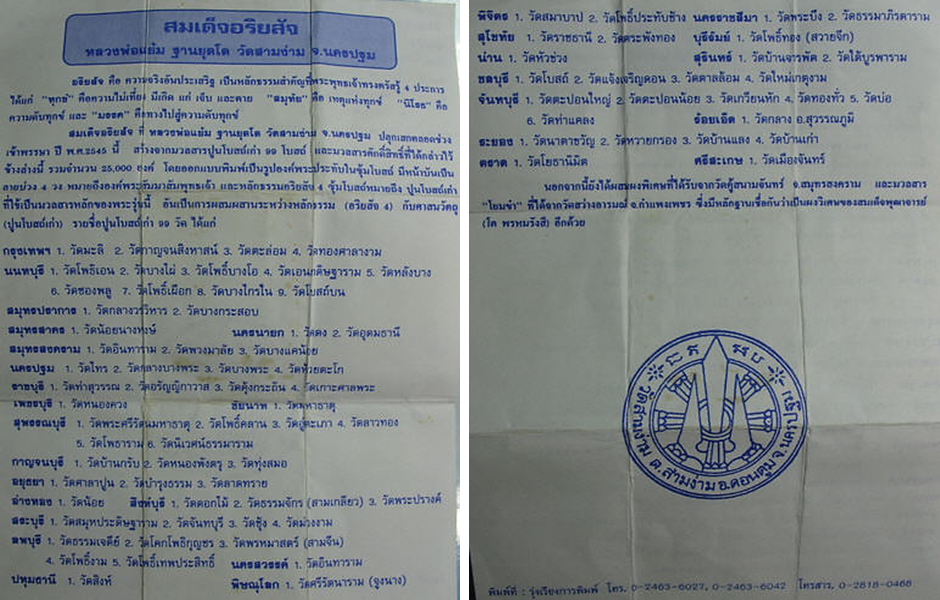 สมเด็จอริยสัจ
หลวงพ่อแย้ม ฐานยุตโต วัดสามง่าม จ.นครปฐม
อริยสัจ คือ ความจริงอันประเสริฐ เป็นหลักธรรมสำคัญที่พระพุทธเจ้าทรงตรัสรู้ 4 ประการ
ได้แก่ "ทุกข์" คือความไม่เที่ยง มีเกิด แก่ เจ็บ และตาย "สมุทัย" คือ เหตุแห่งทุกข์ "นิโรธ" คือ
ความดับทุกข์ และ "มรรค" คือทางไปสู่ความดับทุกข์
สมเด็จอริยสัจ ที่ หลวงพ่อแย้ม ฐานยุตโต วัดสามง่าม จ.นครปฐม ปลุกเสกตลอดช่วง
เข้าพรรษา ปี พ.ศ.2545 นี้ สร้างจากมวลสารปูนโบสถ์เก่า 99 โบสถ์ และมวลสารศักดิ์สิทธิ์ที่ได้กล่าวไว้
ข้างล่างนี้ รวมจำนวน 25,000 องค์ โดยออกแบบพิมพ์เป็นรูปองค์พระประทับในซุ้มโบสถ์ มีหน้าบันเป็น
ลายบ่วง 4 วง หมายถึงองค์พระสัมมาสัมพุทธเจ้า และหลักธรรมอริยสัจ 4 ซุ้มโบสถ์หมายถึง ปูนโบสถ์เก่า
ที่ใช้เป็นมวลสารหลักของพระรุ่นนี้ อันเป็นการผสมผสานระหว่างหลักธรรม (อริยสัจ 4) กับศาสนวัตถุ
(ปูนโบสถ์เก่า) รายชื่อปูนโบสถ์เก่า 99 วัด ได้แก่
กรุงเทพฯ 1. วัดมะลิ 2. วัดกาญจนสิงหาสน์ 3. วัดตะล่อม 4. วัดทองศาลางาม
นนทบุรี 1. วัดโพธิเอน 2. วัดบางไผ่ 3. วัดโพธิ์บางโอ 4. วัดเอนกดิษฐาราม 5. วัดหลังบาง
6. วัดซองพลู 7. วัดโพธิ์เผือก 8. วัดบางไกรใน 9. วัดโบสถ์บน
สมุทรปราการ 1. วัดกลางวรวิหาร 2. วัดบางกระสอบ
สมุทรสาคร 1. วัดน้อยนางหงษ์ นครนายก 1. วัดดง 2. วัดอุดมธานี
สมุทรสงคราม 1. วัดอินทาราม 2. วัดพวงมาลัย 3. วัดบางแคน้อย
นครปฐม 1. วัดไทร 2. วัดกลางบางพระ 3. วัดบางพระ 4. วัดห้วยตะโก
ราชบุรี 1. วัดท่าสุวรรณ 2. วัดอรัญญิกาวาส 3. วัดคุ้งกระถิน 4. วัดเกาะศาลพระ
เพชรบุรี 1. วัดหนองควง ชัยนาท 1. วัดมหาธาตุ
สุพรรณบุรี 1. วัดพระศรีรัตนมหาธาตุ 2. วัดโพธิ์คลาน 3. วัดภูตะเภา 4. วัดลาวทอง
5. วัดโพธาราม 6. วัดนิเวศน์ธรรมาราม
กาญจนบุรี 1. วัดบ้านกรับ 2. วัดหนองพังตรุ 3. วัดทุ่งสมอ
อยุธยา 1. วัดศาลาปูน 2. วัดบำรุงธรรม 3. วัดลาดทราย
อ่างทอง 1. วัดน้อย สิงห์บุรี 1. วัดดอกไม้ 2. วัดธรรมจักร (สามเกลียว) 3. วัดพระปรางค์
สระบุรี 1. วัดสมุหประดิษฐาราม 2. วัดจันทบุรี 3. วัดซุ้ง 4. วัดม่วงงาม
ลพบุรี 1. วัดธรรมเจดีย์ 2. วัดโคกโพธิกุญชร 3. วัดพรหมาสตร์ (สามจีน)
4. วัดโพธิ์งาม 5. วัดโพธิ์เทพประสิทธิ์ นครสวรรค์ 1. วัดอินทาราม
ปทุมธานี 1. วัดสิงห์ พิษณุโลก 1. วัดศรีรัตนาราม (จูงนาง)
พิจิตร 1. วัดสมาบาป 2. วัดโพธิ์ประทับช้าง นครราชสีมา 1. วัดพระบึง 2. วัดธรรมาภิรตาราม
สุโขทัย 1. วัดราชธานี 2. วัดตระพังทอง บุรีรัมย์ 1. วัดโพธิ์ทอง (สวายจีก)
น่าน 1. วัดหัวข่วง สุรินทร์ 1. วัดบ้านจารพัต 2. วัดใต้บูรพาราม
ชลบุรี 1. วัดโบสถ์ 2. วัดแจ้งเจริญดอน 3. วัดตาลล้อม 4. วัดใหม่เกตุงาม
จันทบุรี 1. วัดตะปอนใหญ่ 2. วัดตะปอนน้อย 3. วัดเกวียนหัก 4. วัดทองทั่ว 5. วัดบ่อ
6. วัดท่าแคลง ร้อยเอ็ด 1. วัดกลาง อ.สุวรรณภูมิ
ระยอง 1. วัดนาตาขวัญ 2. วัดหวายกรอง 3. วัดบ้านแลง 4. วัดบ้านเก่า
ตราด 1. วัดโยธานิมิต ศรีสะเกษ 1. วัดเมืองจันทร์
นอกจากนี้ยังได้ผสมผงพิเศษที่ได้รับจากวัดคู้สนามจันทร์ จ.สมุทรสงคราม และมวลสาร
"โยมขำ" ที่ได้จากวัดสว่างอารมณ์ จ.กำแพงเพชร ซึ่งมีหลักฐานเชื่อกันว่าเป็นผงวิเศษของสมเด็จพุฒาจารย์
(โต พรหมรังสี) อีกด้วย
วัดสามง่าม ต.สามง่าม อ.ดอนตูม จ.นครปฐม
พิมพ์ที่ : รุ่งเรืองการพิมพ์ โทร. 0-2463-6027, 0-2463-6042 โทรสาร. 0-2818-0468